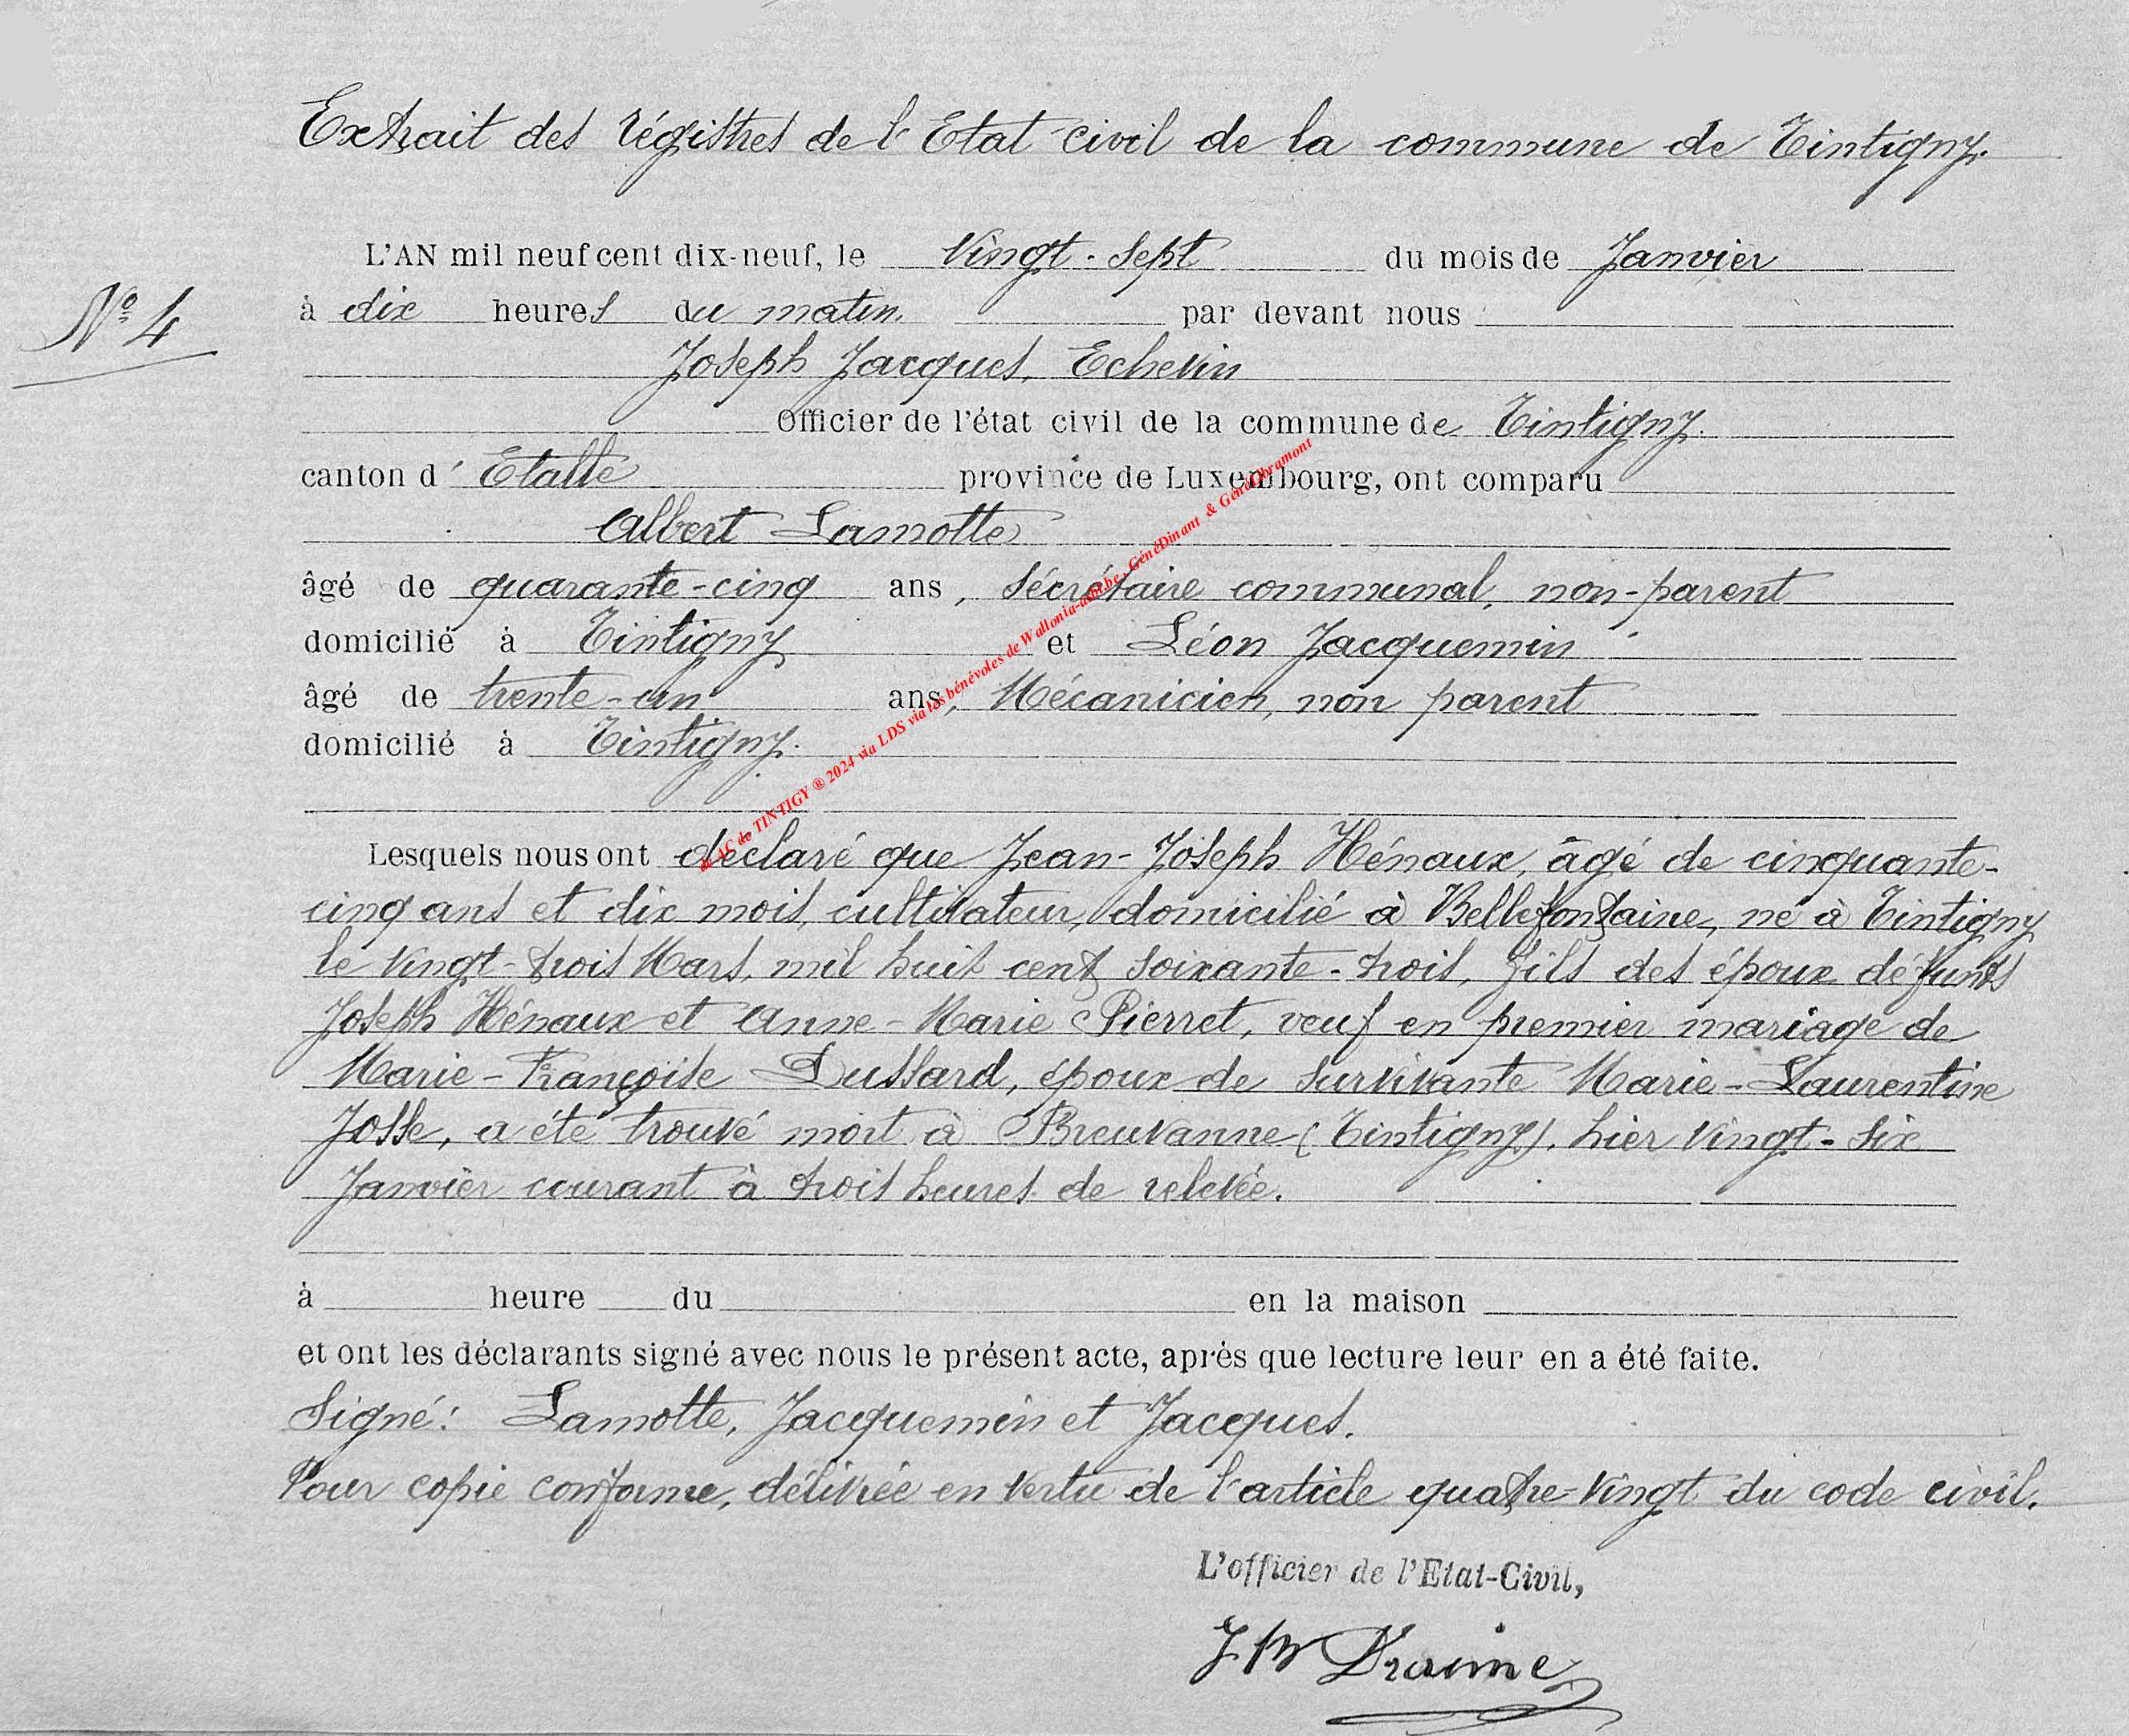 Extrait des régistres de l'Etat civil de la commune de Tintigny.
L'AN mil neuf cent dix-neuf, le Vingt-Sept du mois de Janvier
N° 4
à dix heures du matin. par devant nous
Joseph Jacques, Echevin
Officier de l'état civil de la commune de Tintigny.
canton d' Etalle province de Luxembourg, ont comparu
Albert Lamotte
âgé de quarante-cinq ans, Sécrétaire communal, non-parent
domicilié à Tintigny et Léon Jacquemin
âgé de trente-un ans, Mécanicien, non parent
domicilié à Tintigny.
de AC de TINTIGY ® 2024 via LDS via les bénévoles de Wallonia-asbl.be - GénéDinant & GénéLibramont
Lesquels nous ont déclaré que Jean-Joseph Hénaux, âgé de cinquante-
cinq ans et dix mois, cultivateur, domicilié à Bellefontaine, né à Tintigny
le vingt-trois Mars, mil huit cent soixante-trois, fils des époux défunts
Joseph Hénaux et Anne-Marie Pierret, veuf en premier mariage de
Marie-Françoise Dussard, époux de survivante Marie-Laurentine
Josse, a été trouvé mort à Breuvanne (Tintigny), hier vingt-six
Janvier courant à trois heures de relevée.
à heure du en la maison
et ont les déclarants signé avec nous le présent acte, après que lecture leur en a été faite.
Signé: Lamotte, Jacquemin et Jacques.
Pour copie conforme, délivrée en vertu de l'article quatre-vingt du code civil.
L'officier de l'Etat-Civil,